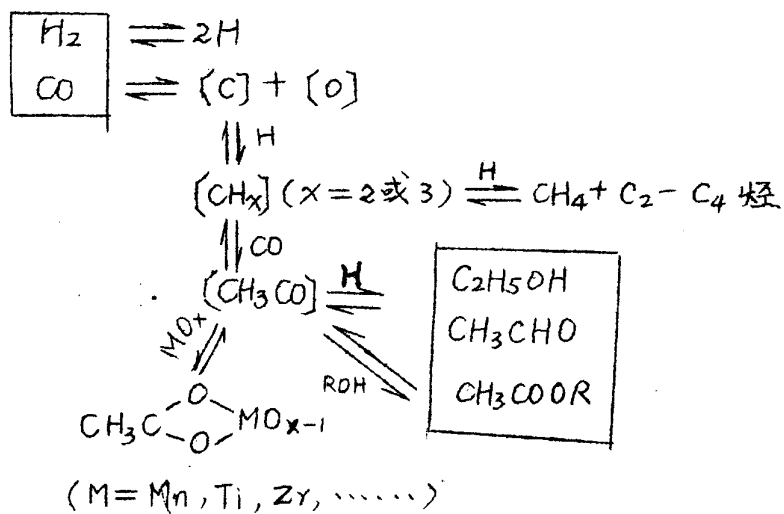 H2 ⇌ 2H
CO ⇌ [C] + [O]
⇅ H
[CHx] (x = 2或3) ⇌ H CH4 + C2 - C4 烃
⇅ CO
[CH3CO] ⇌ H
C2H5OH
CH3CHO
CH3COOR
MOx
ROH
CH3C O O MOx-1
(M = Mn, Ti, Zr, ……)